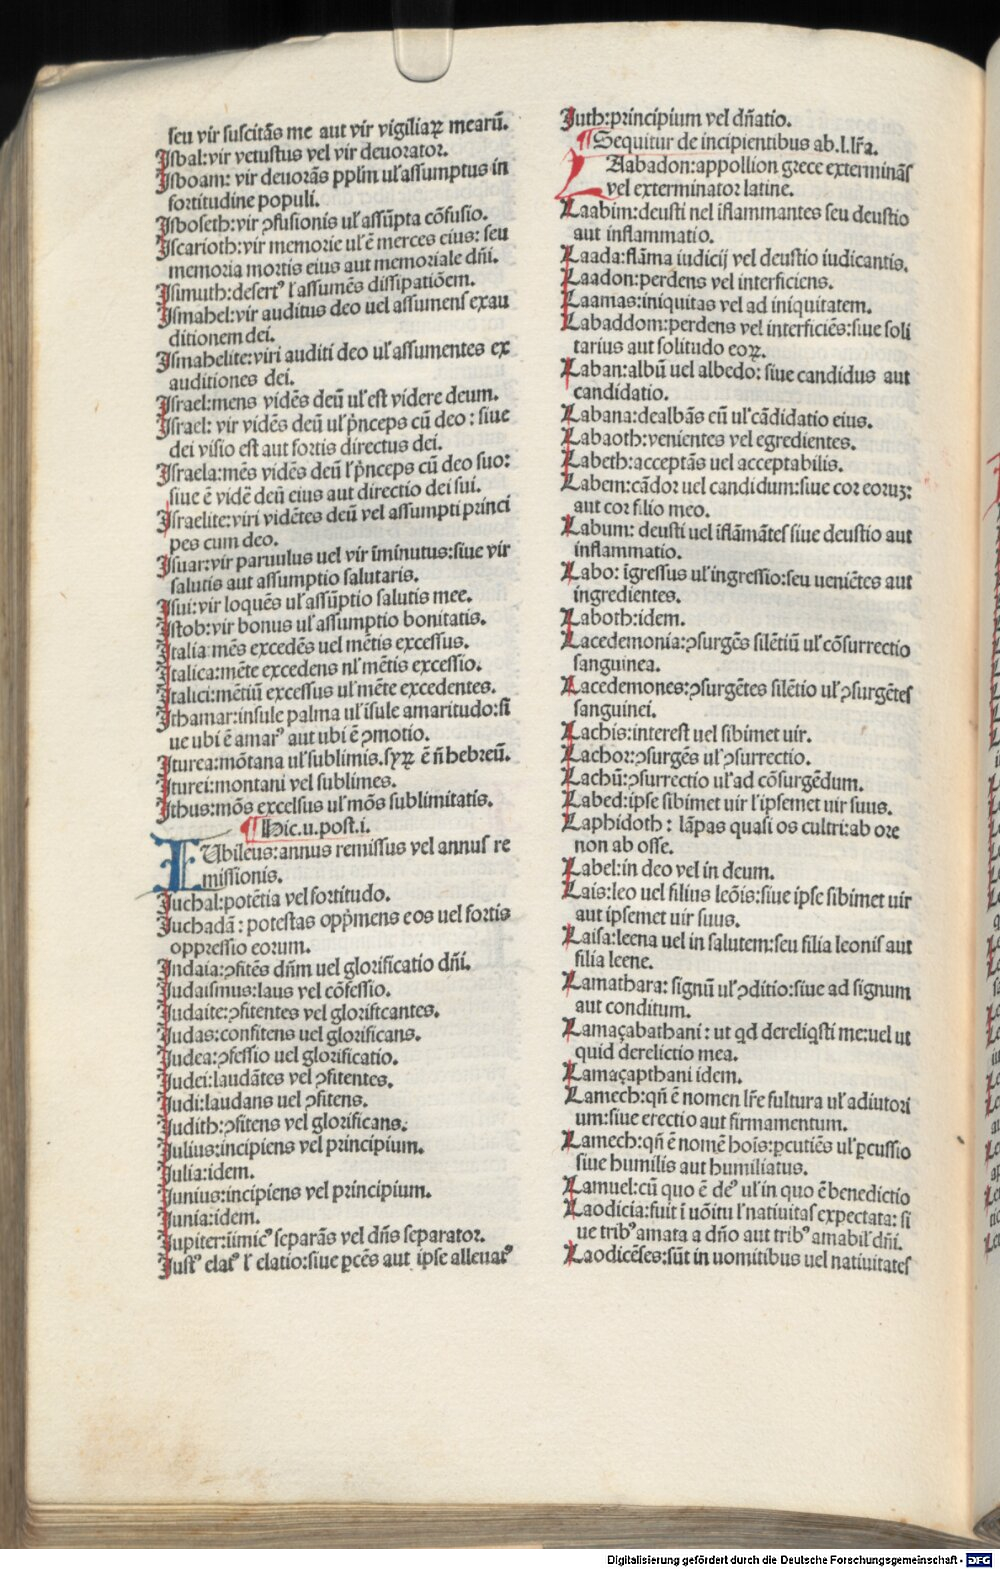 seu vir suscitãs me aut vir vigiliaꝝ mearũ.
Isbal:vir vetustus vel vir deuorator.
Isboam: vir deuorãs pplm ul̛ assumptus in
fortitudine populi.
Isboseth:vir ꝯfusionis ul̛ assũpta cõfusio.
Iscarioth:vir memorie ul̛ ẽ merces eius: seu
memoria mortis eius aut memoriale dñi.
Isimuth:desertꝰ l̛ assumẽs dissipatiõem.
Ismahel:vir auditus deo uel assumens exau
ditionem dei.
Ismahelite:viri auditi deo ul̛ assumentes ex
auditiones dei.
Israel:mens vidẽs deũ ul̛ est videre deum.
Israel: vir vidẽs deũ ul̛ pñceps cũ deo : siue
dei visio est aut fortis directus dei.
Israela:mẽs vidẽs deũ l̛ pñceps cũ deo suo:
siue ẽ vidẽ deũ eius aut directio dei sui.
Israelite:viri vidẽtes deũ vel assumpti princi
pes cum deo.
Isuar:vir paruulus uel vir ĩminutus:siue vir
salutis aut assumptio salutaris.
Isui:vir loquẽs ul̛ assũptio salutis mee.
Istob:vir bonus ul̛ assumptio bonitatis.
Italia:mẽs excedẽs uel mẽtis excessus.
Italica:mẽte excedens nl̛ mẽtis excessio.
Italici:mẽtiũ excessus ul̛ mẽte excedentes.
Ithamar:insule palma ul̛ ĩsule amaritudo:si
ue ubi ẽ amarꝰ aut ubi ẽ ꝯmotio.
Iturea:mõtana ul̛ sublimis.syꝝ ẽ ñ hebreũ.
Iturei:montani vel sublimes.
Ithus:mõs excelsus ul̛ mõs sublimitatis.
¶ Hic.u.post.i.
IUbileus:annus remissus vel annus re
missionis.
Iuchal:potẽtia vel fortitudo.
Iuchadã: potestas oppmens eos uel fortis
oppressio eorum.
Indaia:ꝯfitẽs dñm uel glorificatio dñi.
Iudaismus:laus vel cõfessio.
Iudaite:ꝯfitentes vel glorificantes.
Iudas:confitens uel glorificans.
Iudea:ꝯfessio uel glorificatio.
Iudei:laudãtes vel ꝯfitentes.
Iudi:laudans uel ꝯfitens.
Iudith:ꝯfitens vel glorificans.
Iulius:incipiens vel principium.
Iulia:idem.
Iunius:incipiens vel principium.
Iunia:idem.
Iupiter:iimicꝰ separãs vel dñs separator.
Iustꝰ elatꝰ l̛ elatio:siue ꝑcẽs aut ipse alleuatꝰ
Iuth:principium vel dñatio.
¶ Sequitur de incipientibus ab.l.lr̃a.
LAabadon:appollion grece exterminãs
vel exterminator latine.
Laabim:deusti nel ĩflammantes seu deustio
aut inflammatio.
Laada:flãma iudicij vel deustio iudicantis.
Laadon:perdens vel interficiens.
Laamas:iniquitas vel ad iniquitatem.
Labaddom:perdens vel interficiẽs:siue soli
tarius aut solitudo eoꝝ.
Laban:albũ uel albedo: siue candidus aut
candidatio.
Labana:dealbãs cũ ul̛ cãdidatio eius.
Labaoth:venientes vel egredientes.
Labeth:acceptãs uel acceptabilis.
Labem:cãdor uel candidum:siue cor eoruꝫ:
aut cor filio meo.
Labum: deusti uel ĩflãmãtes siue deustio aut
inflammatio.
Labo: ĩgressus ul̛ ingressio:seu ueniẽtes aut
ingredientes.
Laboth:idem.
Lacedemonia:ꝯsurgẽs silẽtiũ ul̛ cõsurrectio
sanguinea.
Lacedemones:ꝯsurgẽtes silẽtio ul̛ ꝯsurgẽtes
sanguinei.
Lachis:interest uel sibimet uir.
Lachor:ꝯsurgẽs ul̛ ꝯsurrectio.
Lachũ:ꝯsurrectio ul̛ ad cõsurgẽdum.
Labed:ipse sibimet uir l̛ ipsemet uir suus.
Laphidoth: lãpas quasi os cultri:ab ore
non ab osse.
Label:in deo vel in deum.
Lais:leo uel filius leõis:siue ipse sibimet uir
aut ipsemet uir suus.
Laisa:leena uel in salutem:seu filia leonis aut
filia leene.
Lamathara: signũ ul̛ ꝯditio:siue ad signum
aut conditum.
Lamaçabathani: ut qd dereliqsti me:uel ut
quid derelictio mea.
Lamaçapthani idem.
Lamech:qñ ẽ nomen lr̃e fultura ul̛ adiutori
um:siue erectio aut firmamentum.
Lamech:qñ ẽ nomẽ hoĩs:ꝑcutiẽs ul̛ ꝑcussio
siue humilis aut humiliatus.
Lamuel:cũ quo ẽ deꝰ ul̛ in quo ẽ benedictio
Laodicia:fuit ĩ uõitu l̛ natiuitas expectata: si
ue tribꝰ amata a dño aut tribꝰ amabil̛ dñi.
Laodicẽses:sũt in uomitibus uel natiuitates
Digitalisierung gefördert durch die Deutsche Forschungsgemeinschaft - DFG